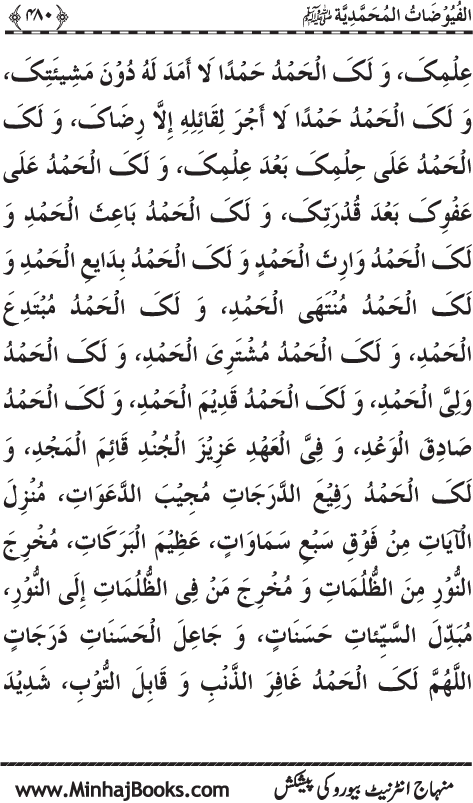 الفُیُوْضَاتُ الْمُحَمَّدِیَّة ﷺ ﴿۴۸۰﴾
عِلْمِکَ، وَ لَکَ الْحَمْدُ حَمْدًا لَا أَمَدَ لَهُ دُوْنَ مَشِیئَتِکَ،
وَ لَکَ الْحَمْدُ حَمْدًا لَا أَجْرَ لِقَائِلِهِ إِلَّا رِضَاکَ، وَ لَکَ
الْحَمْدُ عَلَی حِلْمِکَ بَعْدَ عِلْمِکَ، وَ لَکَ الْحَمْدُ عَلَی
عَفْوِکَ بَعْدَ قُدْرَتِکَ، وَ لَکَ الْحَمْدُ بَاعِثَ الْحَمْدِ وَ
لَکَ الْحَمْدُ وَارِثَ الْحَمْدِ وَ لَکَ الْحَمْدُ بِدَایعِ الْحَمْدِ وَ
لَکَ الْحَمْدُ مُنْتَهَی الْحَمْدِ، وَ لَکَ الْحَمْدُ مُبْتَدِعَ
الْحَمْدِ، وَ لَکَ الْحَمْدُ مُشْتَرِیَ الْحَمْدِ، وَ لَکَ الْحَمْدُ
وَلِیَّ الْحَمْدِ، وَ لَکَ الْحَمْدُ قَدِیْمَ الْحَمْدِ، وَ لَکَ الْحَمْدُ
صَادِقَ الْوَعْدِ، وَ فِیَّ الْعَهْدِ عَزِیْزَ الْجُنْدِ قَائِمَ الْمَجْدِ، وَ
لَکَ الْحَمْدُ رَفِیْعَ الدَّرَجَاتِ مُجِیْبَ الدَّعَوَاتِ، مُنْزِلَ
الْآیَاتِ مِنْ فَوْقِ سَبْعِ سَمَاوَاتٍ، عَظِیْمَ الْبَرَکَاتِ، مُخْرِجَ
النُّوْرِ مِنَ الظُّلُمَاتِ وَ مُخْرِجَ مَنْ فِی الظُّلُمَاتِ إِلَی النُّوْرِ،
مُبَدِّلَ السَّیِّئَاتِ حَسَنَاتٍ، وَ جَاعِلَ الْحَسَنَاتِ دَرَجَاتٍ
اللَّهُمَّ لَکَ الْحَمْدُ غَافِرَ الذَّنْبِ وَ قَابِلَ التَّوْبِ، شَدِیْدَ
منہاج انٹرنیٹ بیورو کی پیشکش www.MinhajBooks.com